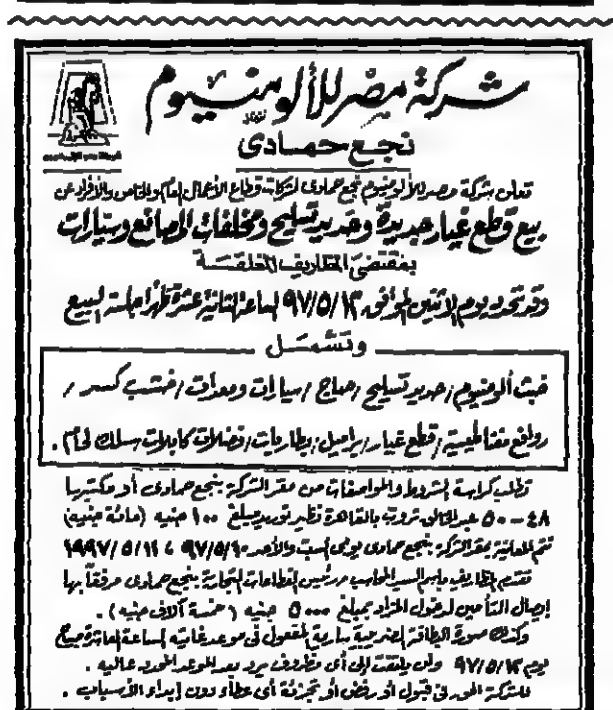 شركة مصر للألومنيوم
نجع حمادى
تعلن شركة مصر للألومنيوم نجع حمادى لشركات قطاع الأعمال العام والخاص والأفراد عن
بيع قطع غيار جديدة وحديد تسليح ومخلفات المصانع وسيارات
بمقتضى المظاريف المغلقة
وقد تحدد يوم الاثنين الموافق ٩٧/٥/١٢ الساعة الثانية عشرة ظهراً لجلسة البيع
وتشمل
خبث ألومنيوم / حديد تسليح / صاج / سيارات ومعدات / خشب كسر /
روافع مغناطيسية / قطع غيار / براميل / بطاريات / فضلات كابلات / سلك لحام .
تطلب كراسة الشروط والمواصفات من مقر الشركة بنجع حمادى أو مكتبها
٤٨ - ٥٠ عبد الخالق ثروت بالقاهرة نظير توريد مبلغ ١٠٠ جنيه (مائة جنيه)
تتم المعاينة بمقر الشركة بنجع حمادى يومى السبت والأحد ٩٧/٥/١٠ ، ١٩٩٧/٥/١١
تقدم المظاريف باسم السيد المحاسب / رئيس القطاعات التجارية بنجع حمادى مرفقاً بها
إيصال التأمين لدخول المزاد بمبلغ ٥٠٠٠ جنيه ( خمسة آلاف جنيه ) .
وكذلك صورة البطاقة الضريبية سارية المفعول فى موعد غايته الساعة العاشرة صباح
يوم ٩٧/٥/١٢ ولن يلتفت إلى أى مظروف يرد بعد الموعد المحدد عاليه .
للشركة الحق فى قبول أو رفض أو تجزئة أى عطاء دون إبداء الأسباب .